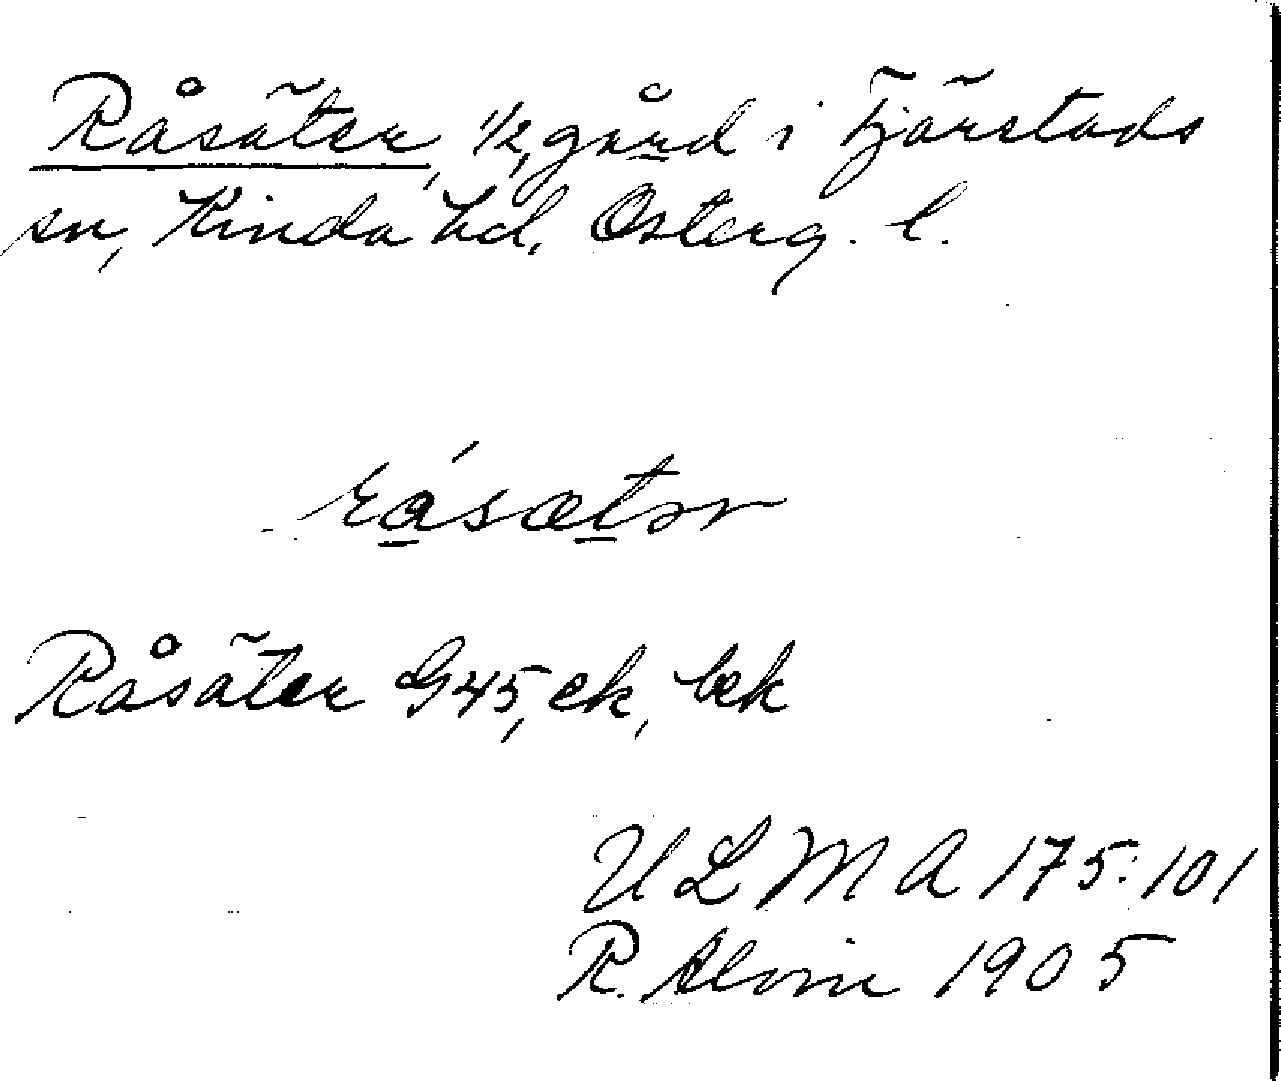 Råsäter, 1/2 gård i Tjärstads
sn, Kinda hd, Österg. l.
råsætər
Råsäter G45, ek, bek
ULMA 175:101
R. Alvin 1905